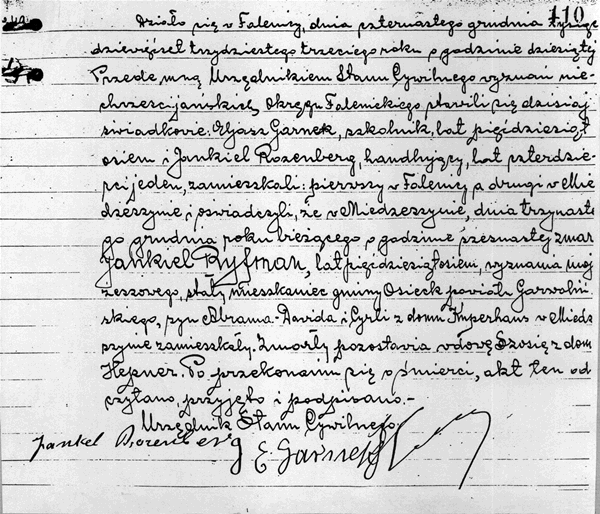 110
Działo się w Falenicy, dnia czternastego grudnia tysiąc
dziewięćset trzydziestego trzeciego roku o godzinie dziesiątej
Przede mną Urzędnikiem Stanu Cywilnego wyznań nie-
chrześcijańskich, Okręgu Falenickiego stawili się dzisiaj
świadkowie: Eljasz Garnek, szkolnik, lat pięćdziesiąt
osiem i Jankiel Rozenberg, handlujący, lat czterdzie-
ści jeden, zamieszkali: pierwszy w Falenicy a drugi w Mie
dzeszynie i oświadczyli, że w Miedzeszynie, dnia trzynaste
go grudnia roku bieżącego o godzinie szesnastej zmar
Jankiel Ryfman, lat pięćdziesiąt osiem, wyznania moj
żeszowego, stały mieszkaniec gminy Osieck powiatu Garwoliń
skiego, syn Abrama-Dawida i Cyrli z domu Kuperhaus w Miedz
szynie zamieszkały. Zmarły pozostawia wdowę Szosię z dom
Hepner. Po przekonaniu się o śmierci, akt ten od
czytano, przyjęto i podpisano.-
Urzędnik Stanu Cywilnego
Jankel Rozenberg
E. Garnek